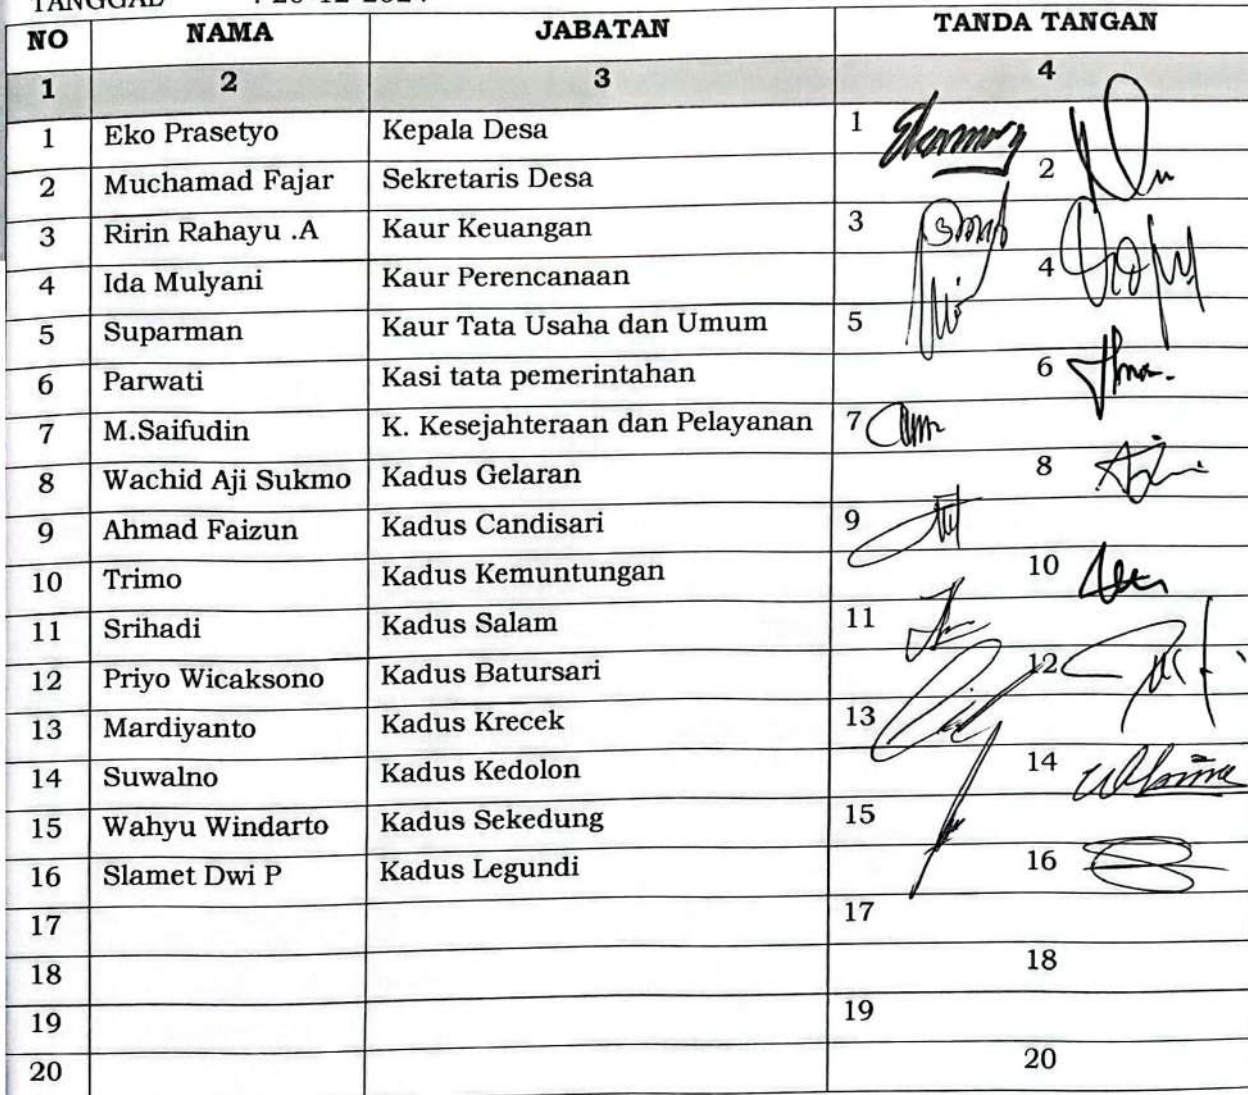 TANGGAL
NO NAMA JABATAN TANDA TANGAN
1 2 3 4
1 Eko Prasetyo Kepala Desa 1
2 Muchamad Fajar Sekretaris Desa 2
3 Ririn Rahayu .A Kaur Keuangan 3
4 Ida Mulyani Kaur Perencanaan 4
5 Suparman Kaur Tata Usaha dan Umum 5
6 Parwati Kasi tata pemerintahan 6
7 M.Saifudin K. Kesejahteraan dan Pelayanan 7
8 Wachid Aji Sukmo Kadus Gelaran 8
9 Ahmad Faizun Kadus Candisari 9
10 Trimo Kadus Kemuntungan 10
11 Srihadi Kadus Salam 11
12 Priyo Wicaksono Kadus Batursari 12
13 Mardiyanto Kadus Krecek 13
14 Suwalno Kadus Kedolon 14
15 Wahyu Windarto Kadus Sekedung 15
16 Slamet Dwi P Kadus Legundi 16
17 17
18 18
19 19
20 20